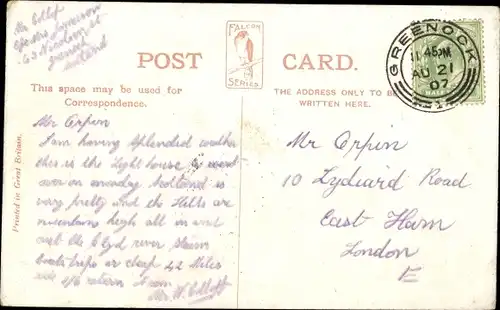 Mr
63 Nicolson
Scotland
POST CARD.
FALCON
SERIES
This space may be used for
Correspondence.
THE ADDRESS ONLY TO BE
WRITTEN HERE.
GREENOCK
11 45PM
AU 21
07
Printed in Great Britain.
Mr Orpin
I am having splendid weather
this is the light house I went
over on monday Scotland is
very pretty and the Hills are
mountains high all in and
out the Clyd river steam
boats trips are cheap 42 Miles
return
Mr W.
Mr Orpin
10 Lydiard Road
East Ham
London
E